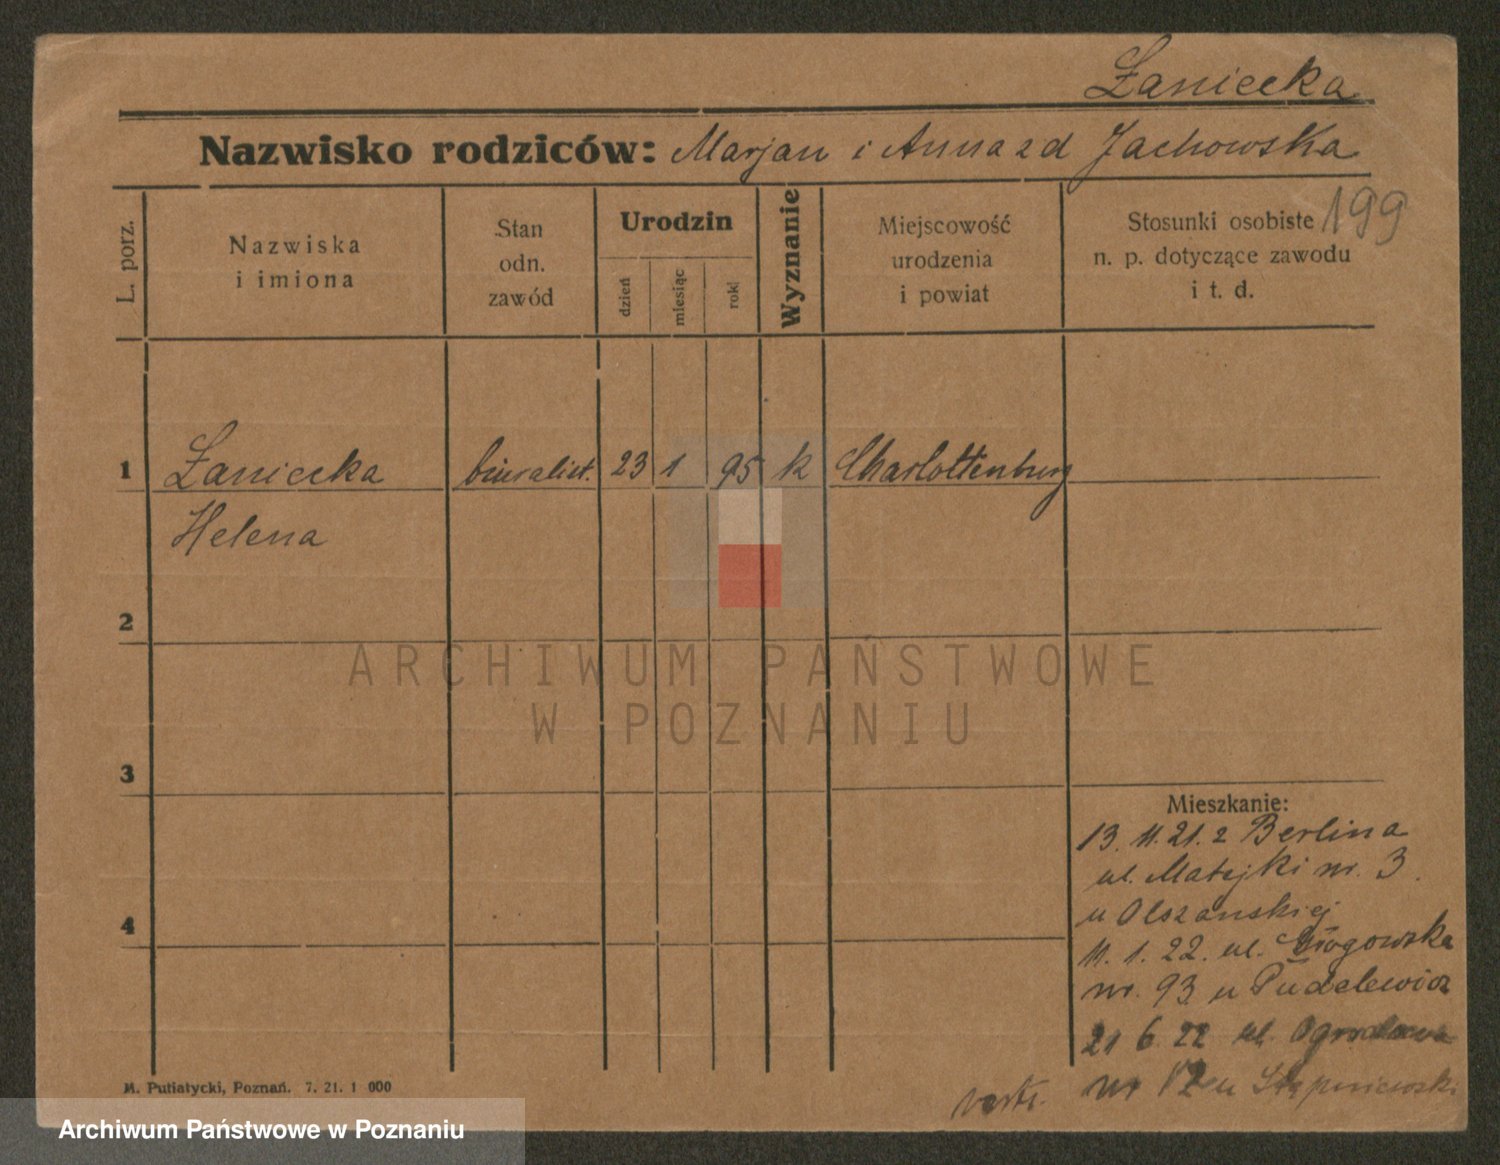 Łaniecka
Nazwisko rodziców: Marjan i Anna z d Jachowska
199
L. porz.
Nazwiska
i imiona
Stan
odn.
zawód
Urodzin
dzień
miesiąc
rok
Wyznanie
Miejscowość
urodzenia
i powiat
Stosunki osobiste
n. p. dotyczące zawodu
i t. d.
1 Łaniecka biuralist. 23 1 95 k Charlottenburg
Helena
2
3
4
ARCHIWUM PAŃSTWOWE
W POZNANIU
Mieszkanie:
13. 11. 21. z Berlina
ul. Matejki nr. 3.
u Olszanskiej
11. 1. 22. ul. Głogowska
nr. 93 u Pudelewicz
21 6. 22 ul. Ogrodowa
nr 12 u
M. Putiatycki, Poznań. 7. 21. 1 000
Archiwum Państwowe w Poznaniu